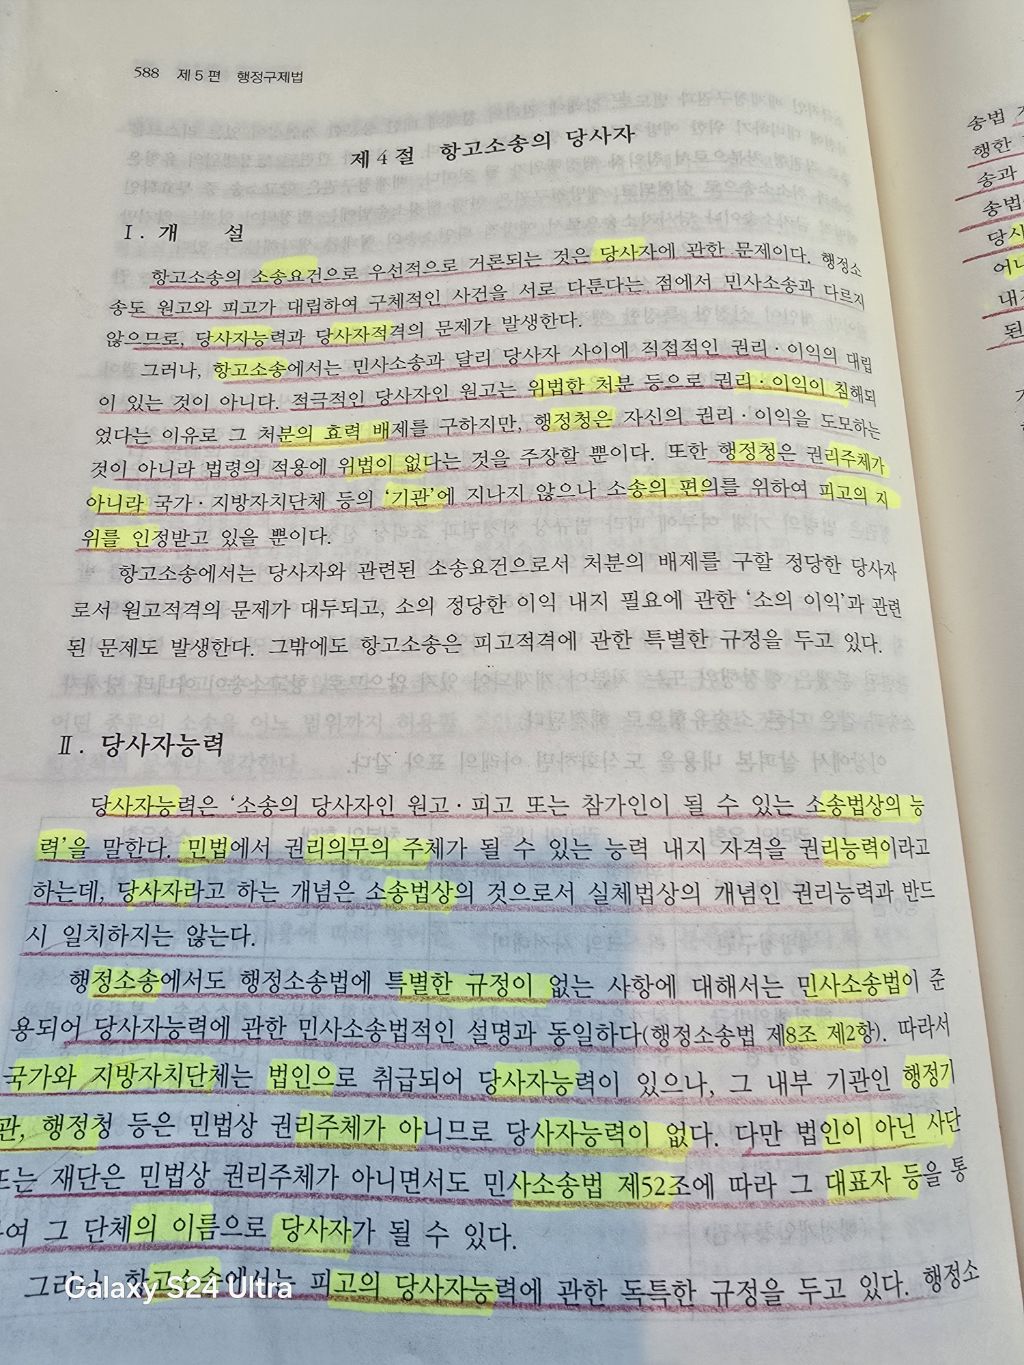 588 제 5 편 행정구제법
제 4 절 항고소송의 당사자
Ⅰ. 개 설
항고소송의 소송요건으로 우선적으로 거론되는 것은 당사자에 관한 문제이다. 행정소
송도 원고와 피고가 대립하여 구체적인 사건을 서로 다툰다는 점에서 민사소송과 다르지
않으므로, 당사자능력과 당사자적격의 문제가 발생한다.
그러나, 항고소송에서는 민사소송과 달리 당사자 사이에 직접적인 권리·이익의 대립
이 있는 것이 아니다. 적극적인 당사자인 원고는 위법한 처분 등으로 권리·이익이 침해되
었다는 이유로 그 처분의 효력 배제를 구하지만, 행정청은 자신의 권리·이익을 도모하는
것이 아니라 법령의 적용에 위법이 없다는 것을 주장할 뿐이다. 또한 행정청은 권리주체가
아니라 국가·지방자치단체 등의 ‘기관’에 지나지 않으나 소송의 편의를 위하여 피고의 지
위를 인정받고 있을 뿐이다.
항고소송에서는 당사자와 관련된 소송요건으로서 처분의 배제를 구할 정당한 당사자
로서 원고적격의 문제가 대두되고, 소의 정당한 이익 내지 필요에 관한 ‘소의 이익’과 관련
된 문제도 발생한다. 그밖에도 항고소송은 피고적격에 관한 특별한 규정을 두고 있다.
Ⅱ. 당사자능력
당사자능력은 ‘소송의 당사자인 원고·피고 또는 참가인이 될 수 있는 소송법상의 능
력’을 말한다. 민법에서 권리의무의 주체가 될 수 있는 능력 내지 자격을 권리능력이라고
하는데, 당사자라고 하는 개념은 소송법상의 것으로서 실체법상의 개념인 권리능력과 반드
시 일치하지는 않는다.
행정소송에서도 행정소송법에 특별한 규정이 없는 사항에 대해서는 민사소송법이 준
용되어 당사자능력에 관한 민사소송법적인 설명과 동일하다(행정소송법 제8조 제2항). 따라서
국가와 지방자치단체는 법인으로 취급되어 당사자능력이 있으나, 그 내부 기관인 행정기
관, 행정청 등은 민법상 권리주체가 아니므로 당사자능력이 없다. 다만 법인이 아닌 사단
또는 재단은 민법상 권리주체가 아니면서도 민사소송법 제52조에 따라 그 대표자 등을 통
여 그 단체의 이름으로 당사자가 될 수 있다.
그러나 항고소송에서는 피고의 당사자능력에 관한 독특한 규정을 두고 있다. 행정소
Galaxy S24 Ultra
송법
행한
송과
송법
당사
어
내지
된